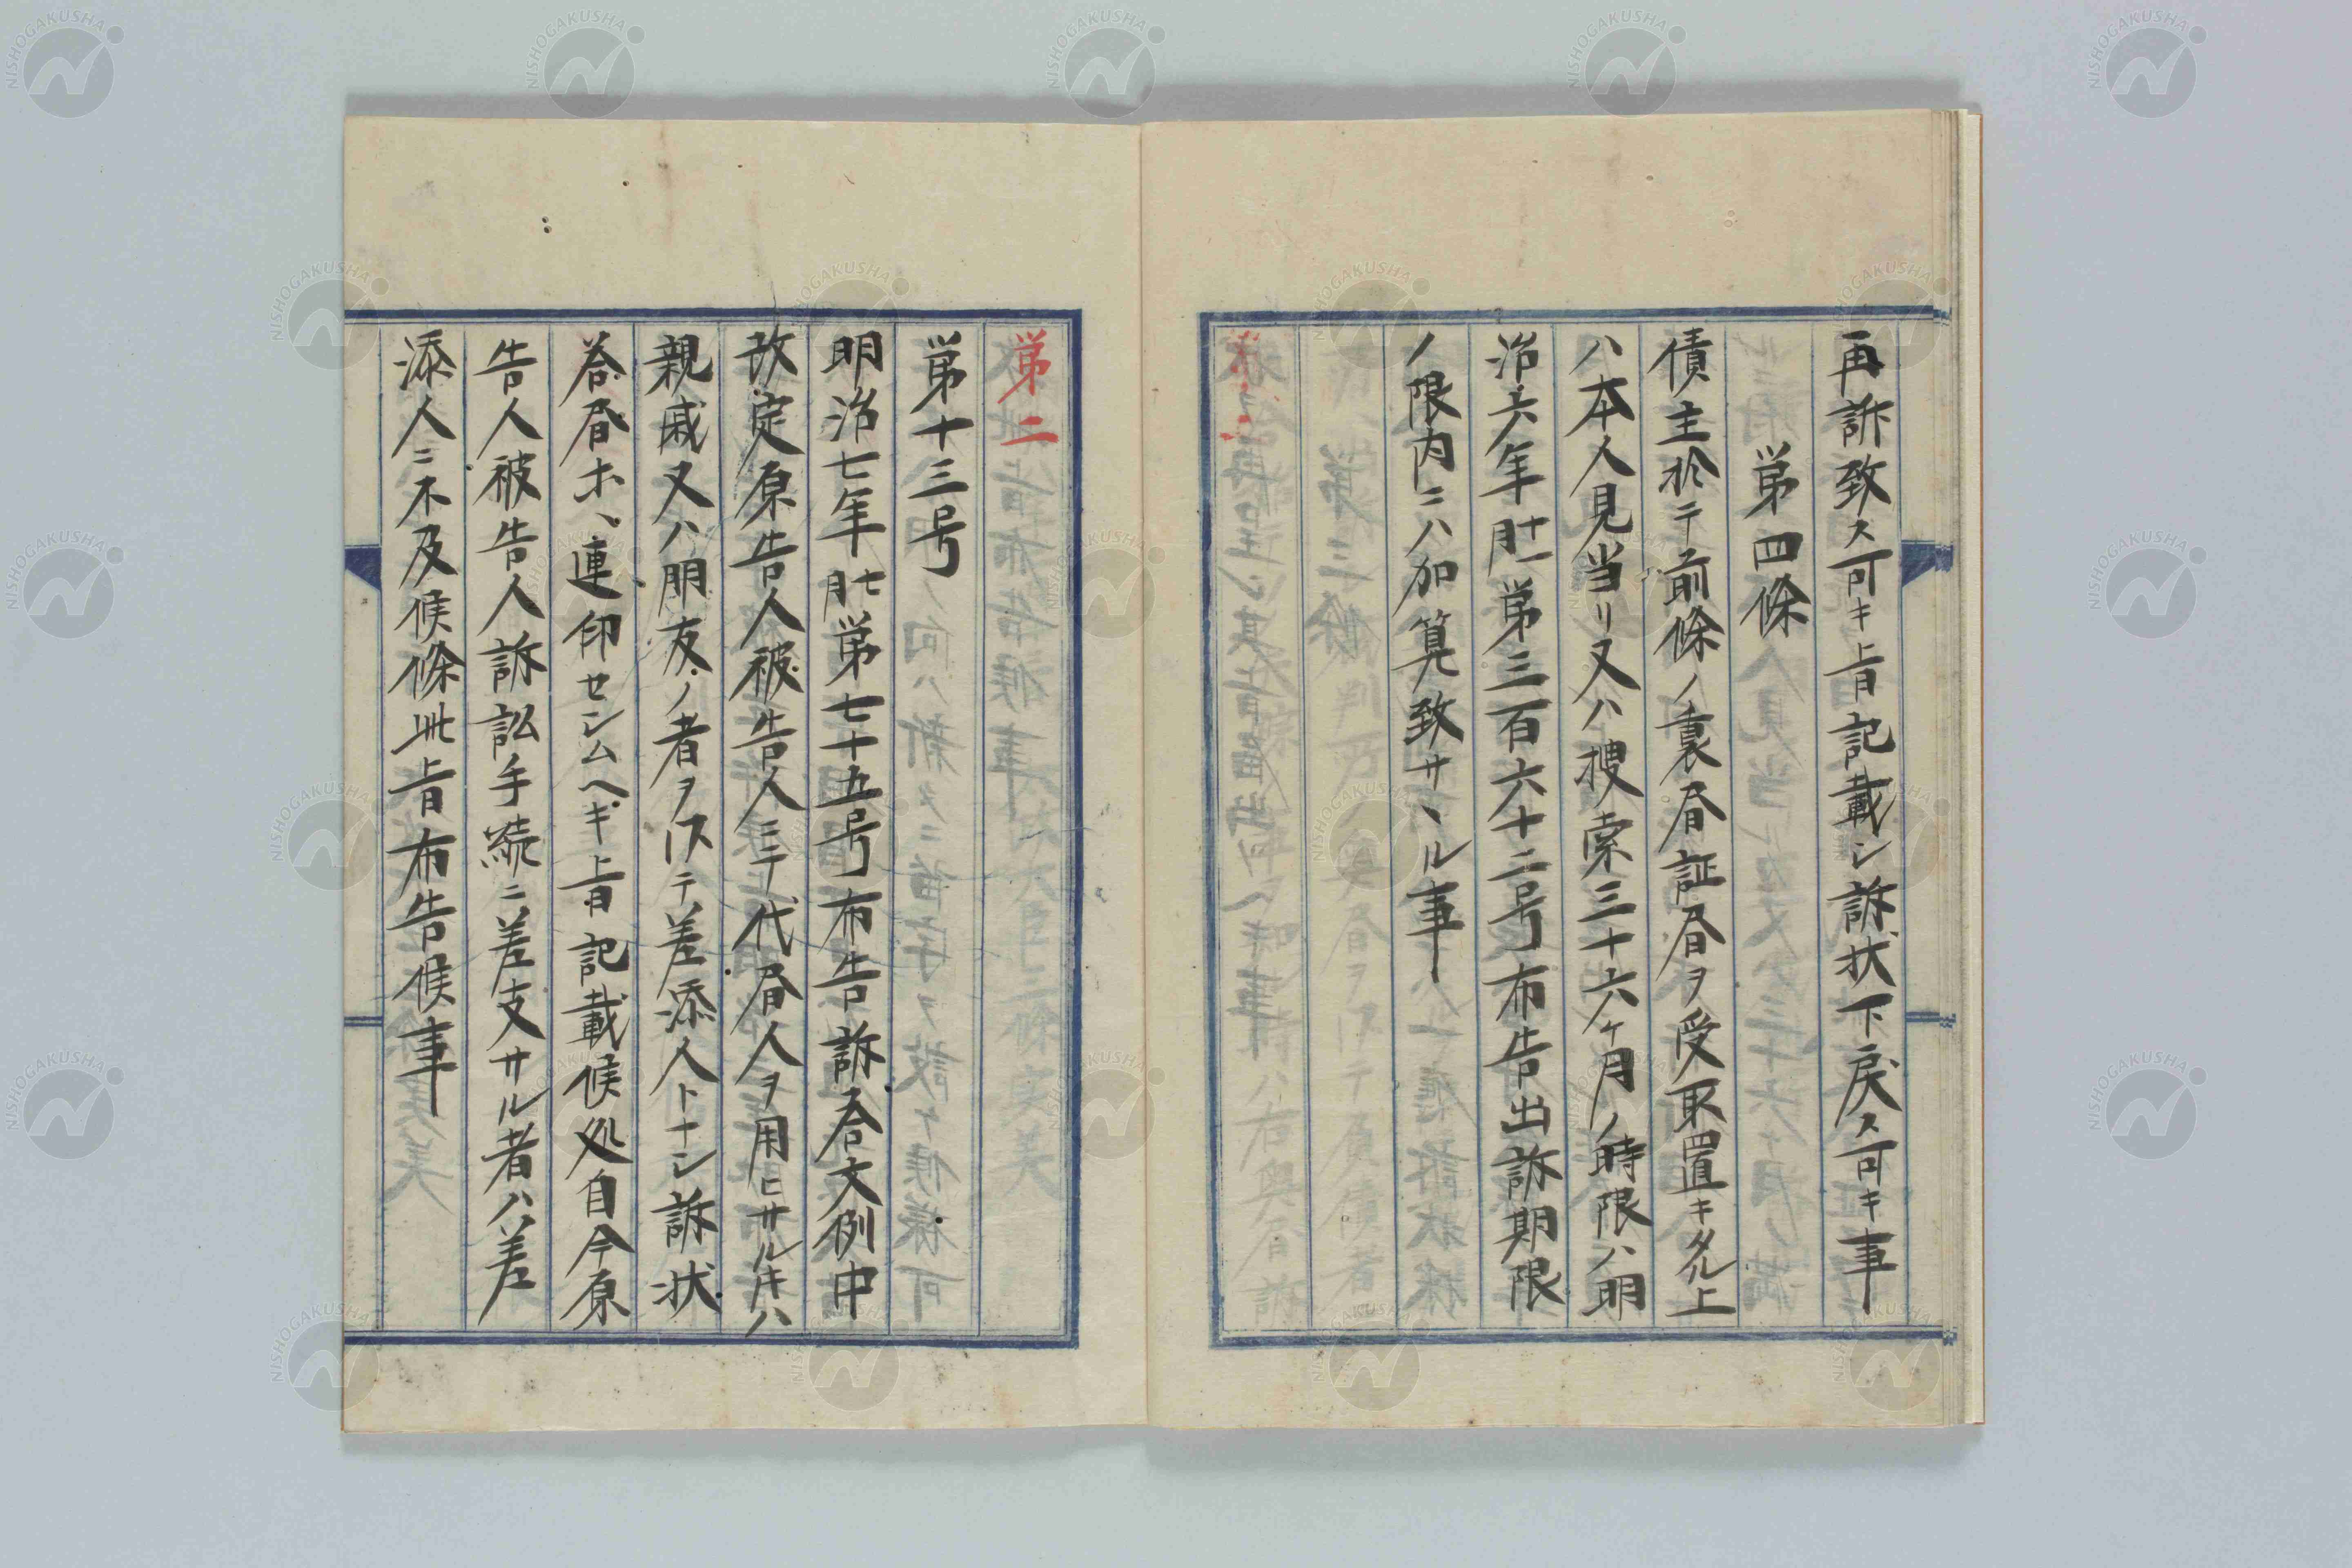 再訴致ス可キ旨記載シ訴状下戻ス可キ事
第四條
債主於テ前條ノ裏書証書ヲ受取置キタル上
ハ本人見当リ又ハ捜索三十六ケ月ノ時限ハ明
治六年十一月第三百六十二号布告出訴期限
ノ限内ニハ加算致サヽル事
第二
第十三号
明治七年七月第七十五号布告訴答文例中
改定原告人被告人ニテ代書人ヲ用ヒサル時ハ
親戚又ハ朋友ノ者ヲ以テ差添人トナシ訴状
答書ホヘ連印セシムヘキ旨記載候処自今原
告人被告人訴訟手続ニ差支サル者ハ差
添人ニ不及候條此旨布告候事
NISHOGAKUSHA